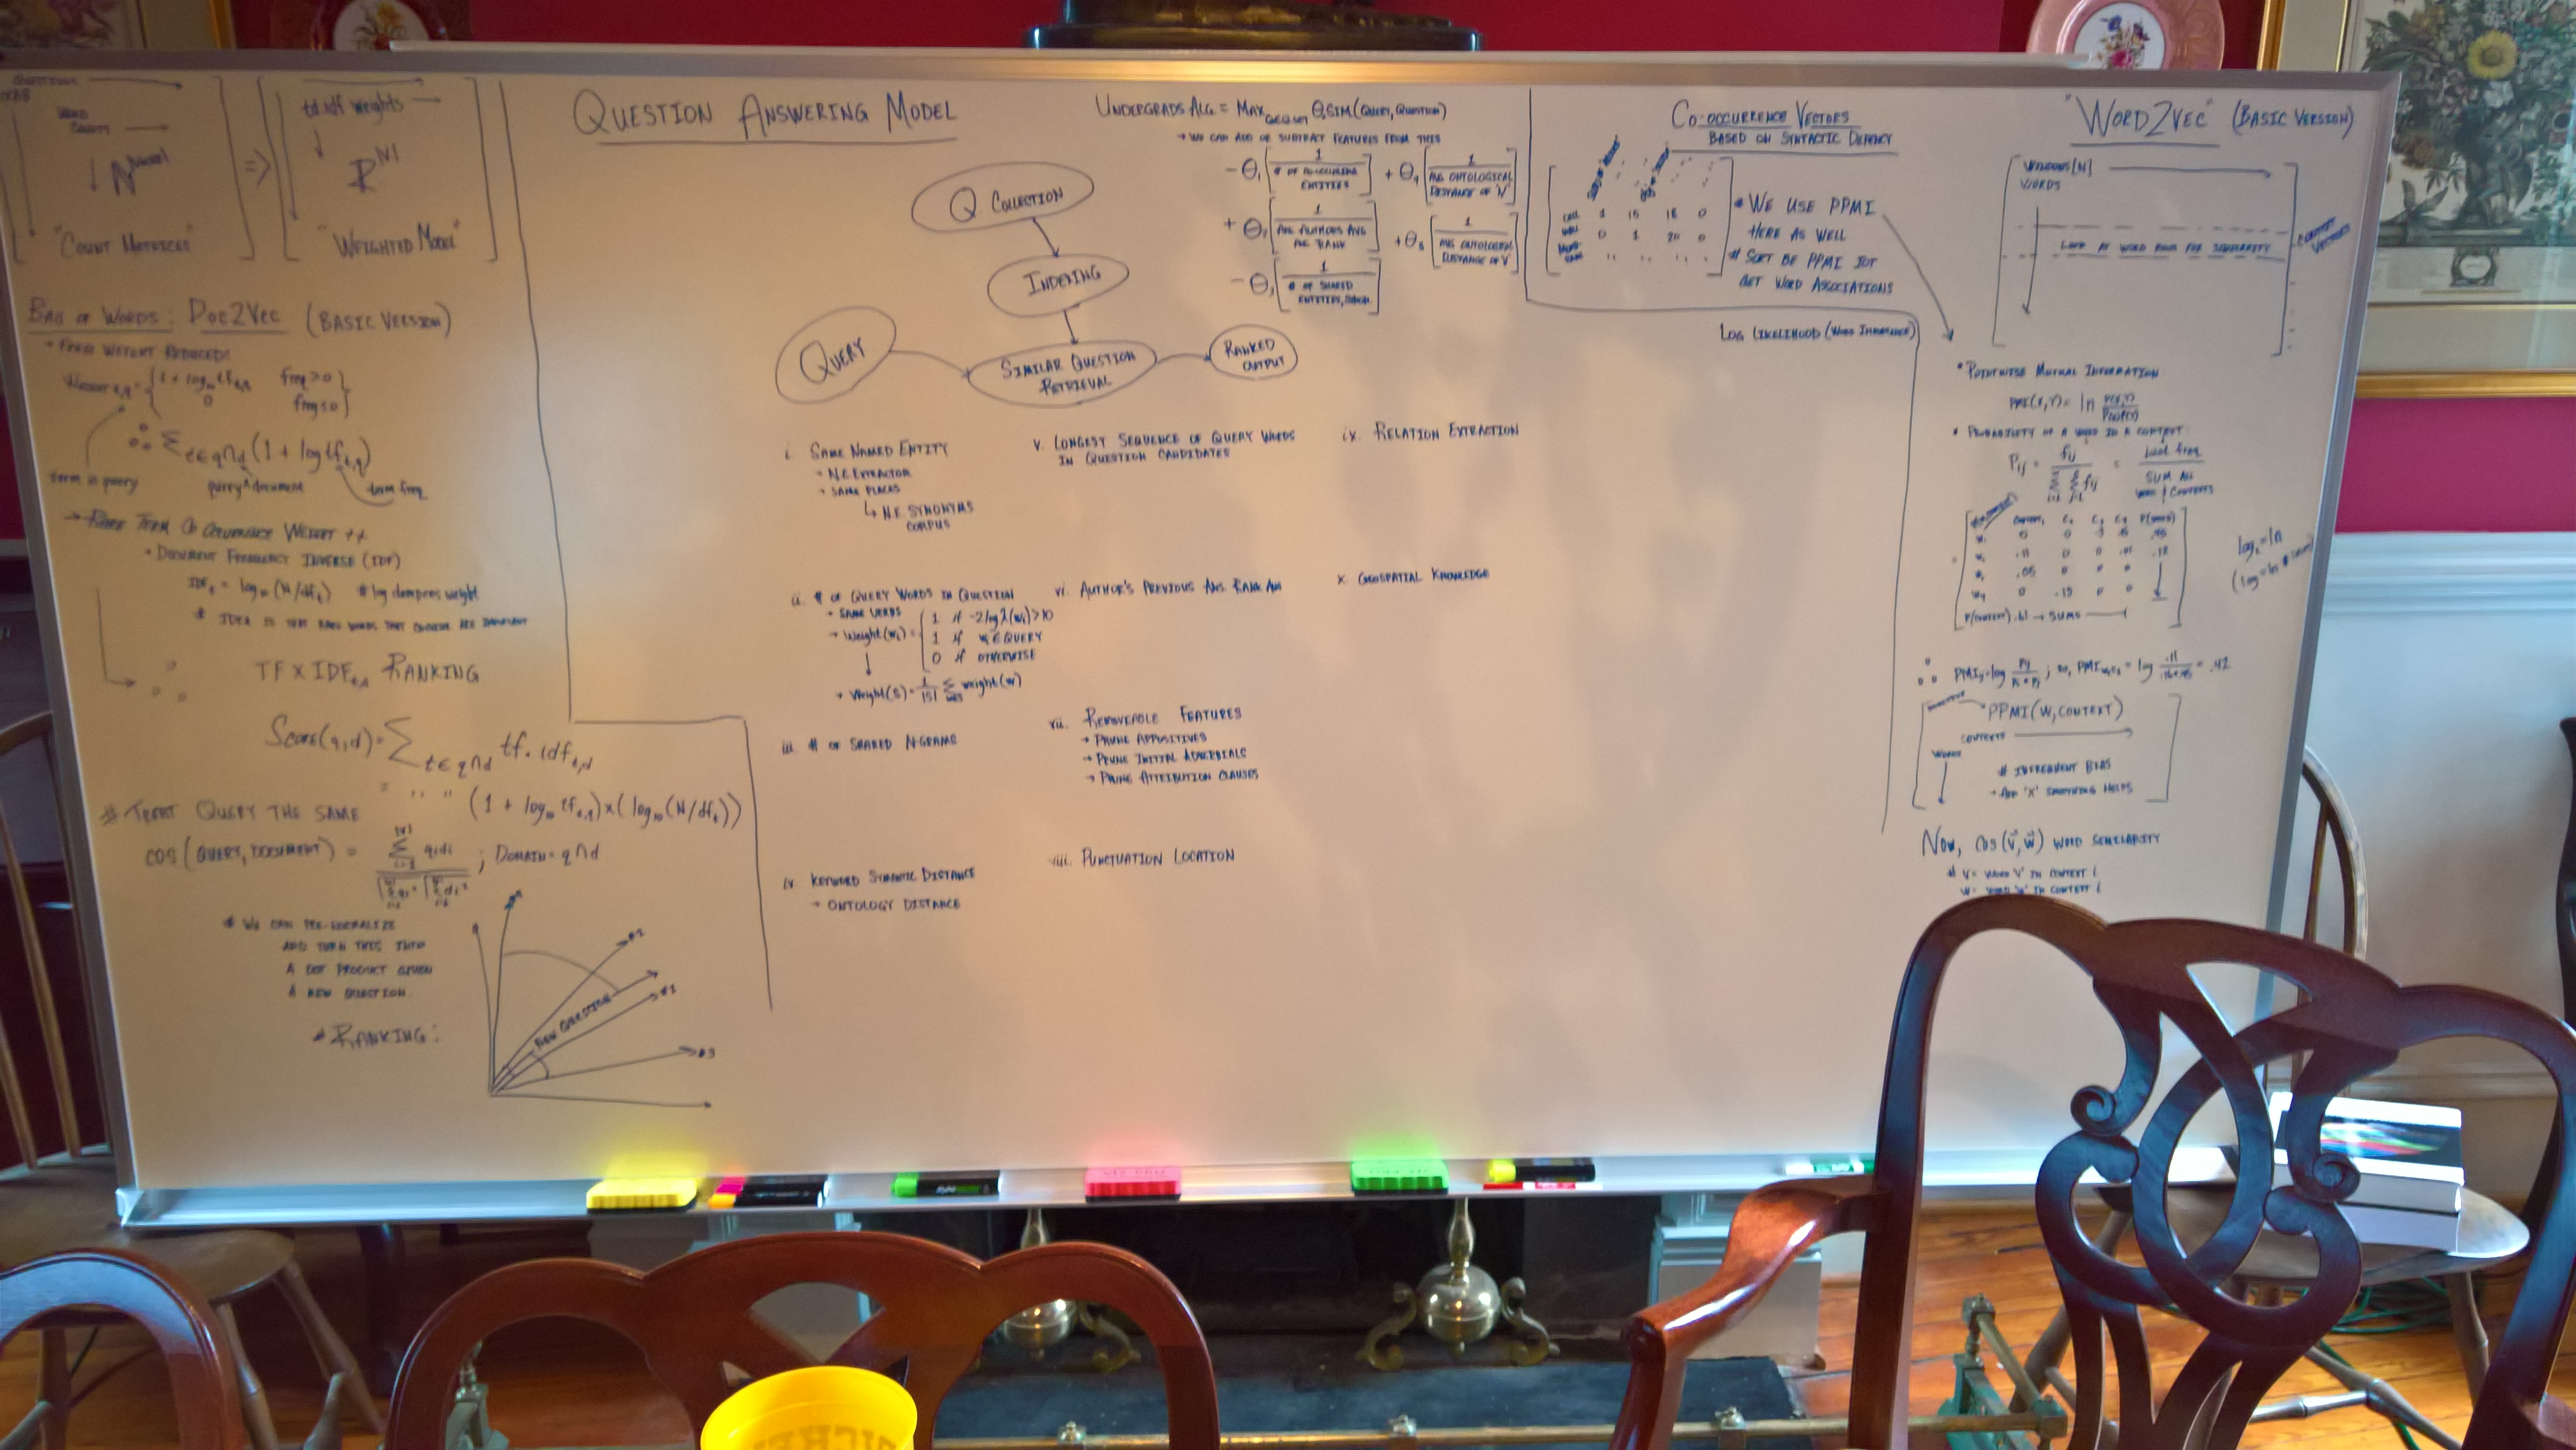 WORD
COUNTS
"COUNT MATRICES"
=>
td.idf weights
"WEIGHTED MODEL"
BAG OF WORDS: DOC2VEC (BASIC VERSION)
freq > 0
0
∴ Σ t∈q∩d (1 + log tf t,q)
term in query
query ^ document
term freq
TERM CO OCCURENCE WEIGHT ++
• DOCUMENT FREQUENCY INVERSE (IDF)
IDF t = log10 (N/df t) # log dampens weight
# IDEA IS THAT RARE WORDS THAT
TF x IDF t,d RANKING
SCORE(q,d) = Σ t∈q∩d tf.idf t,d
= " " (1 + log10 tf t,d) x (log10 (N/df t))
# TREAT QUERY THE SAME
COS (QUERY, DOCUMENT) = ; DOMAIN = q∩d
# WE CAN PRE-NORMALIZE
AND TURN THIS INTO
A DOT PRODUCT GIVEN
A NEW QUESTION
# RANKING:
NEW QUESTION
#2
#1
#3
QUESTION ANSWERING MODEL
Q COLLECTION
INDEXING
QUERY
SIMILAR QUESTION
RETRIEVAL
RANKED
OUTPUT
i. SAME NAMED ENTITY
→ N.E. EXTRACTOR
→ SAME PLACES
↳ N.E. SYNONYMS
CORPUS
ii. # OF QUERY WORDS IN QUESTION
→ SAME VERBS
→ Weight(wi) = 1 if -2log λ(wi) > 10
1 if wi ∈ QUERY
0 if OTHERWISE
→ Weight(s) = 1/|s| Σ weight(w)
iii. # OF SHARED N-GRAMS
iv. KEYWORD SEMANTIC DISTANCE
→ ONTOLOGY DISTANCE
v. LONGEST SEQUENCE OF QUERY WORDS
IN QUESTION CANDIDATES
vi. AUTHOR'S PREVIOUS ANS. RANK
vii. REMOVEABLE FEATURES
→ PRUNE APPOSITIVES
→ PRUNE INITIAL ADVERBIALS
→ PRUNE ATTRIBUTION CLAUSES
viii. PUNCTUATION LOCATION
ix. RELATION EXTRACTION
x. GEOSPATIAL KNOWLEDGE
UNDERGRADS ALG = MAX θ SIM(QUERY, QUESTION)
→ WE CAN ADD OR SUBTRACT FEATURES FROM THIS
1
# OF
ENTITIES
1
AVG ONTOLOGICAL
DISTANCE OF 'N'
1
1
AVG ONTOLOGICAL
DISTANCE OF 'V'
1
# OF SHARED
CO-OCCURRENCE VECTORS
BASED ON SYNTACTIC DEPENCY
1 15 18 0
0 1 20 0
* WE USE PPMI
HERE AS WELL
# SORT BE PPMI IOT
GET WORD ASSOCIATIONS
LOG LIKELIHOOD (WORD IMPORTANCE)
"WORD2VEC" (BASIC VERSION)
WINDOWS [N]
WORDS
LOOK AT WORD ROWS FOR SIMILARITY
CONTEXT
VECTORS
• POINTWISE MUTUAL INFORMATION
PMI(X,Y) = ln P(X,Y)
• PROBABILITY OF A WORD IN A CONTEXT:
Pij = fij
SUM ALL
PPMI(W, CONTEXT)
CONTEXTS
WORDS
# INFREQUENT BIAS
→ ADD 'X' SMOOTHING HELPS
NOW, COS(v,w) WORD SIMILARITY
# V = WORD 'V' IN CONTEXT i
W = WORD 'W' IN CONTEXT i